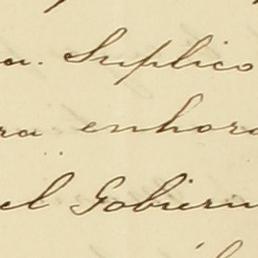 a. Suplico
ra enhora
el Gobiern